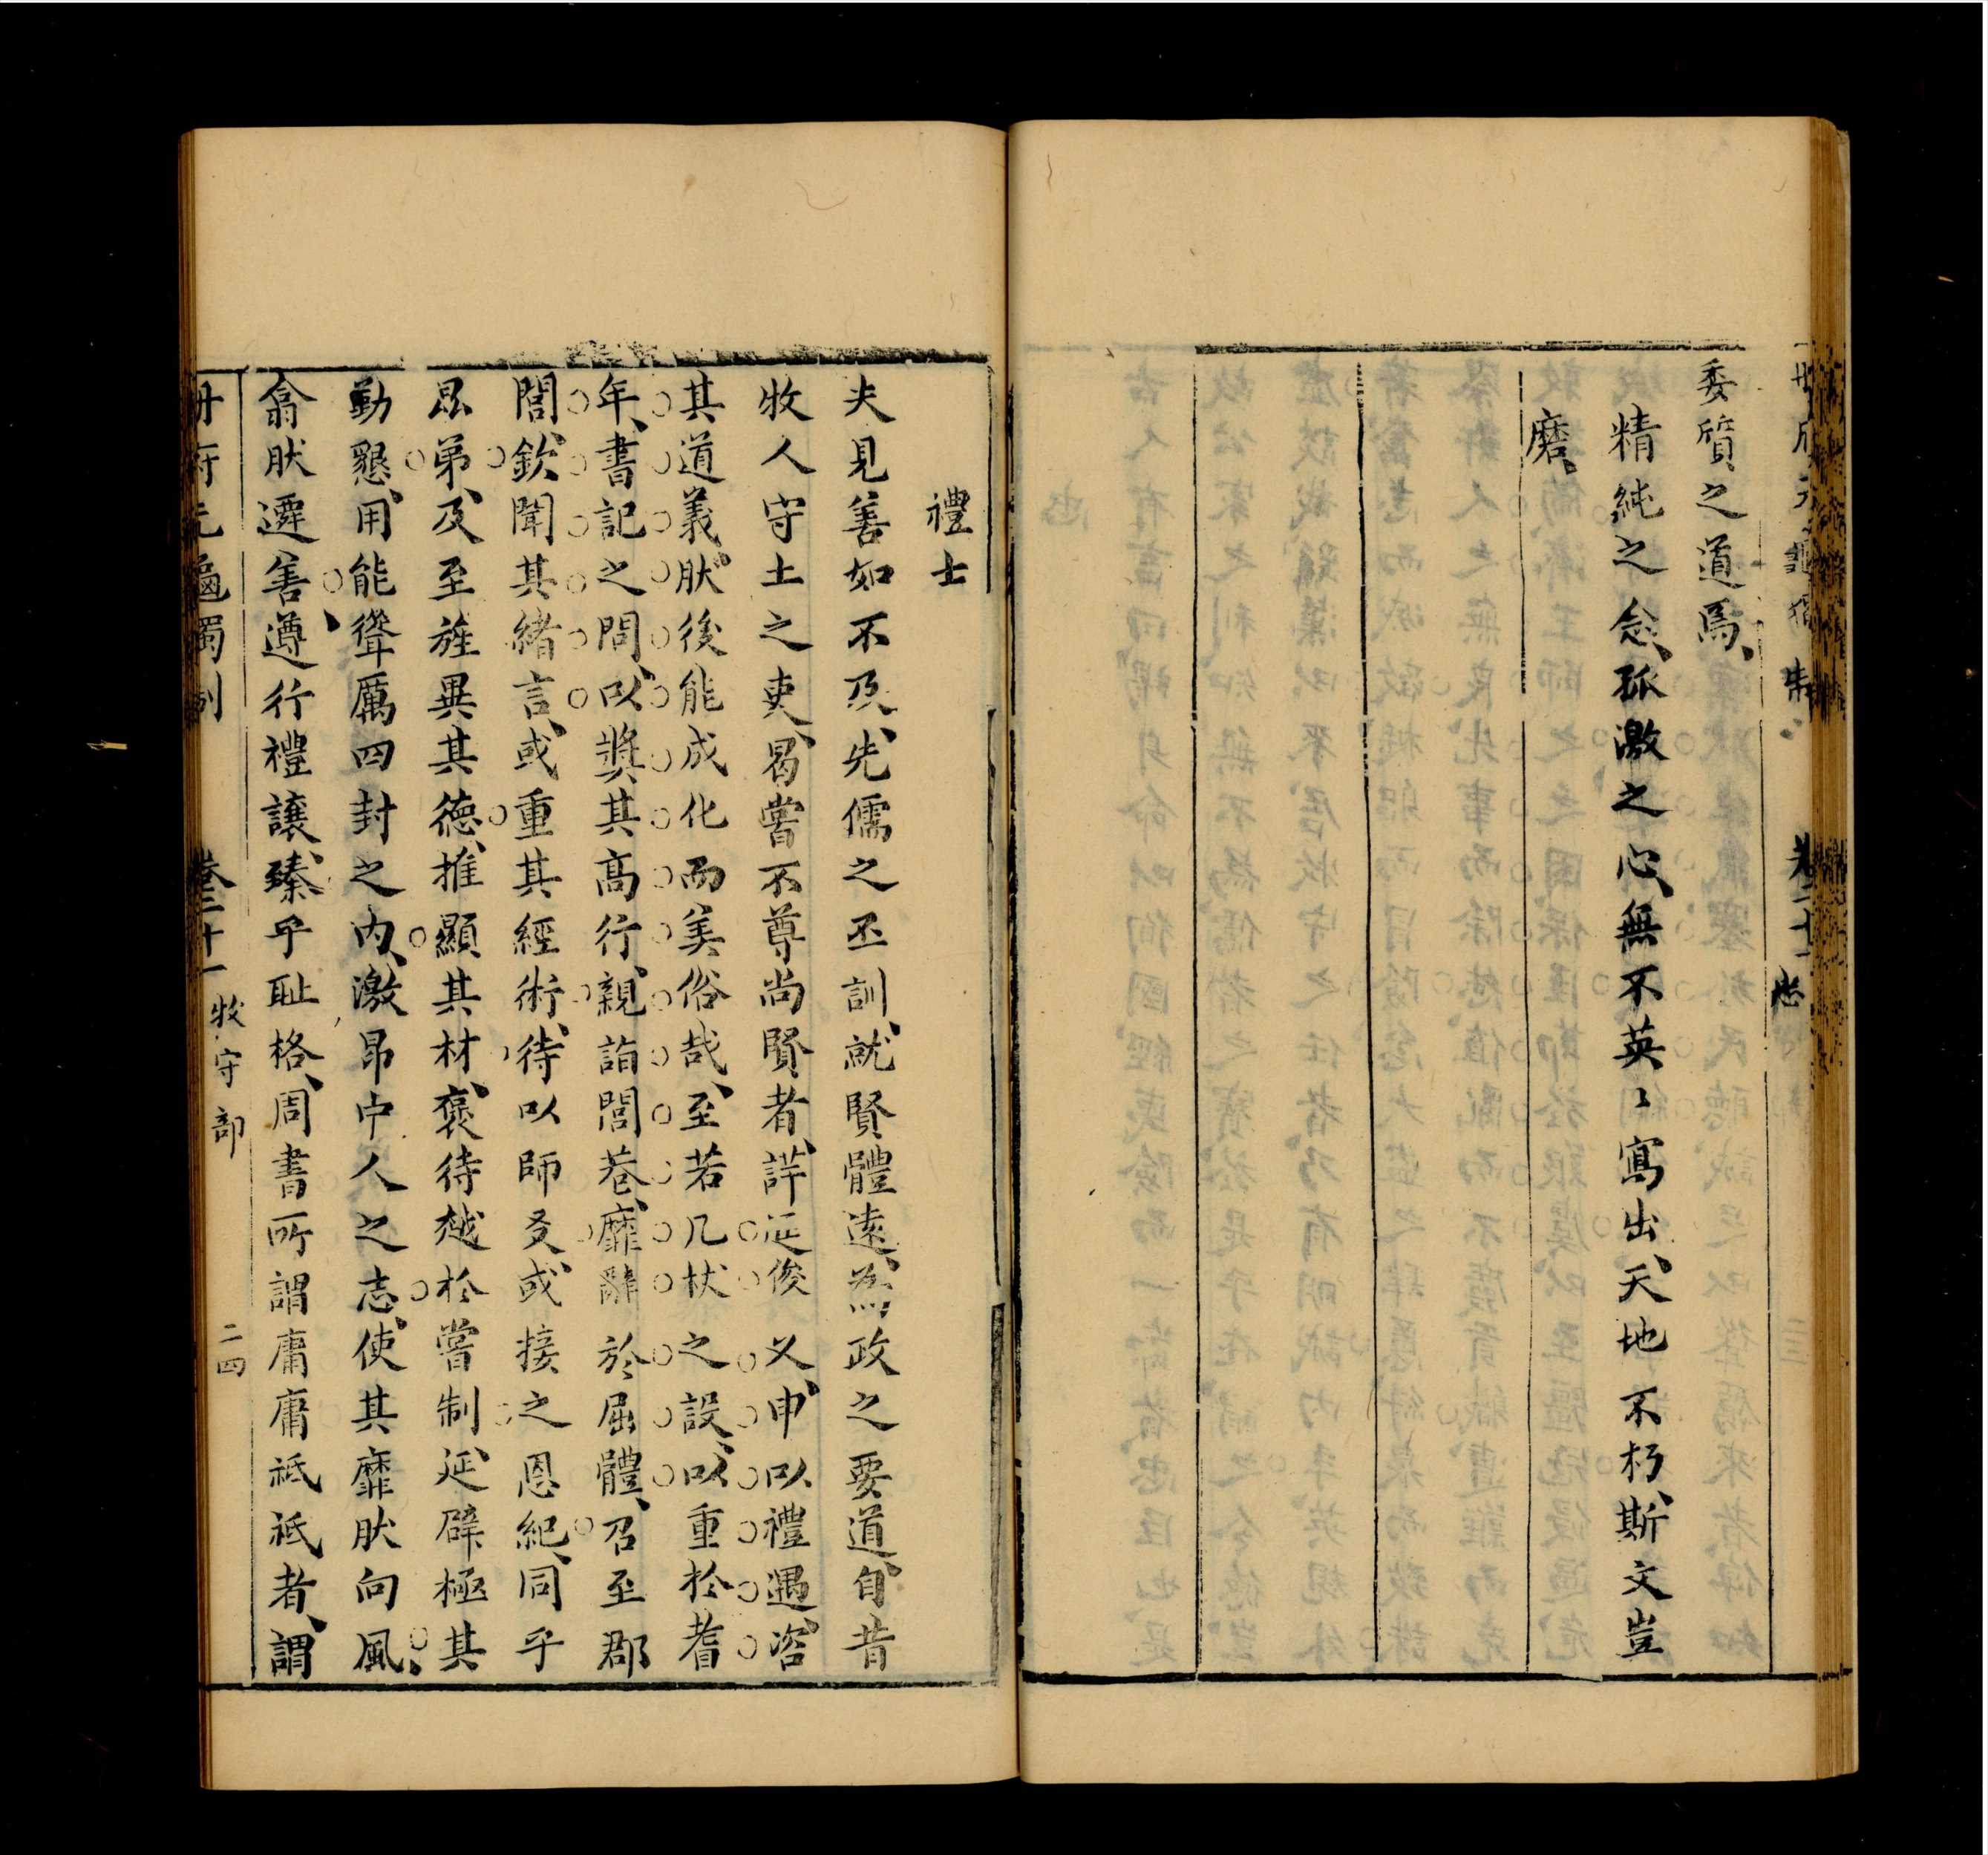 委質之道焉
精純之念孤激之心無不英〻寫出天地不朽斯文豈
磨
禮士
夫見善如不及先儒之丕訓就賢體遠為政之要道自昔
牧人守土之吏曷嘗不尊尚賢者詳延俊乂申以禮遇咨
其道義肰後能成化而美俗哉至若几杖之設以重於耆
年書記之問以奬其高行親詣閭巷靡辭於屈體召至郡
閤欽聞其緒言或重其經術待以師友或接之恩紀同乎
昆弟及至旌異其德推顯其材褒待越於嘗制延辟極其
勤懇用能聳厲四封之內激昂中人之志使其靡肰向風
翕肰遷善遵行禮讓臻乎耻格周書所謂庸庸祗祗者謂
冊府元龜獨制 卷二十一 牧守部 二四